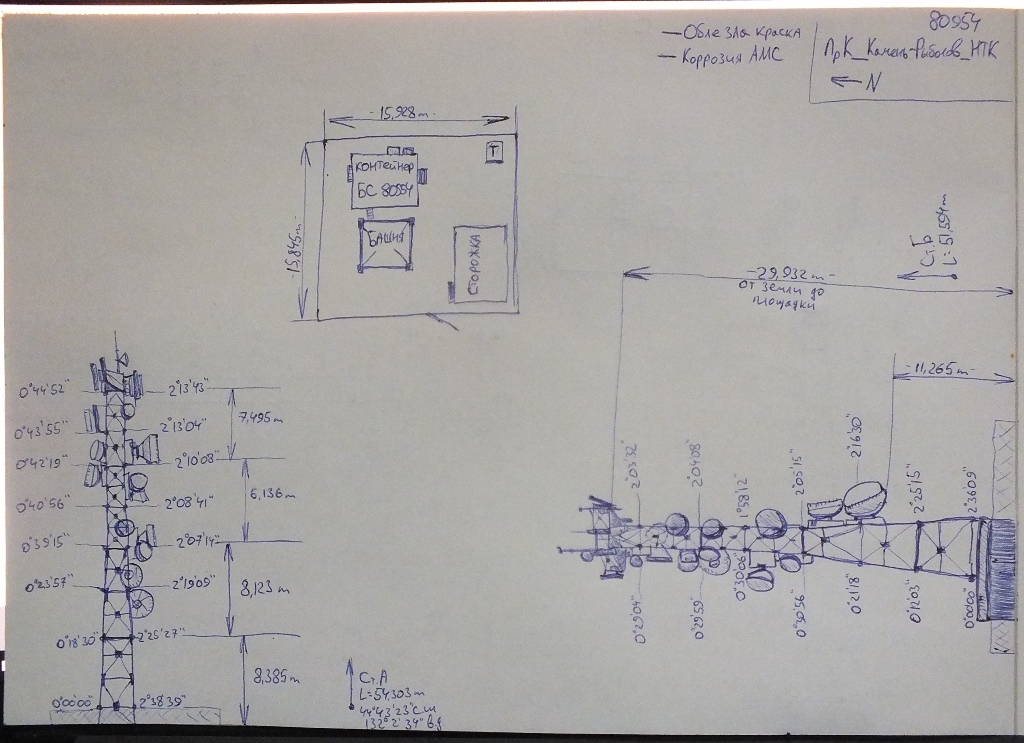 — Облезла краска
— Коррозия АМС
80954
ПрК_Камень-Рыболов_НТК
← N
15,928m
15,845m
Контейнер
БС 80954
Т
Башня
Сторожка
Ст.Б
L=51,554m
29,932m
от земли до
площадки
11,265m
0°44'52" 2°13'43"
7,495m
0°43'55" 2°13'04"
0°42'19" 2°10'08"
6,136m
0°40'56" 2°08'41"
0°39'15" 2°07'14"
0°23'57" 2°19'09"
8,123m
0°18'30" 2°25'27"
8,385m
0°00'00" 2°38'39"
Ст.А
L=54,303m
44°43'23" с.ш
132°2'34" в.д
2°03'32"
2°04'08"
1°58'12"
2°05'15"
2°16'30"
2°25'15"
2°36'09"
0°29'04"
0°29'59"
0°30'06"
0°30'56"
0°21'18"
0°12'03"
0°00'00"